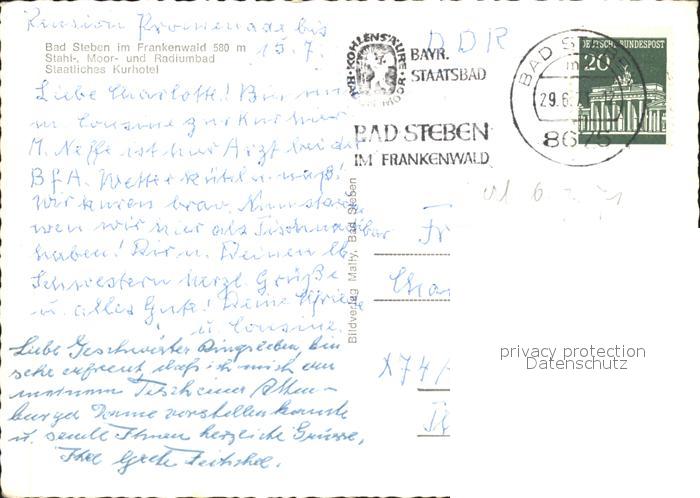 Pension Promenade bis
15.7.
Bad Steben im Frankenwald 580 m
Stahl-, Moor- und Radiumbad
Staatliches Kurhotel
Liebe Charlotte! Bin mit
m. Cousine zur Kur hier
M. Neffe ist hier Arzt bei der
BfA. Wetter kühl u. naß!
Wir kuren brav.
wen wir hier als Tischnachbar
haben! Dir u. Deinen lb.
Schwestern herzl. Grüße
u. alles Gute! Deine
u. Cousine.
Liebe Geschwister bin
sehr erfreut, daß ich mich an
meinem Tisch einer Alten-
burger Dame vorstellen konnte
u. sende Ihnen herzliche Grüsse,
Ihre Grete
Bildverlag Malty, Bad Steben
KOHLENSÄURE
MOOR
BAYR.
STAATSBAD
BAD STEBEN
IM FRANKENWALD
DDR
BAD STEBEN
m
29.6.
8675
DEUTSCHE BUNDESPOST
20
Fr
Char
X74
privacy protection
Datenschutz